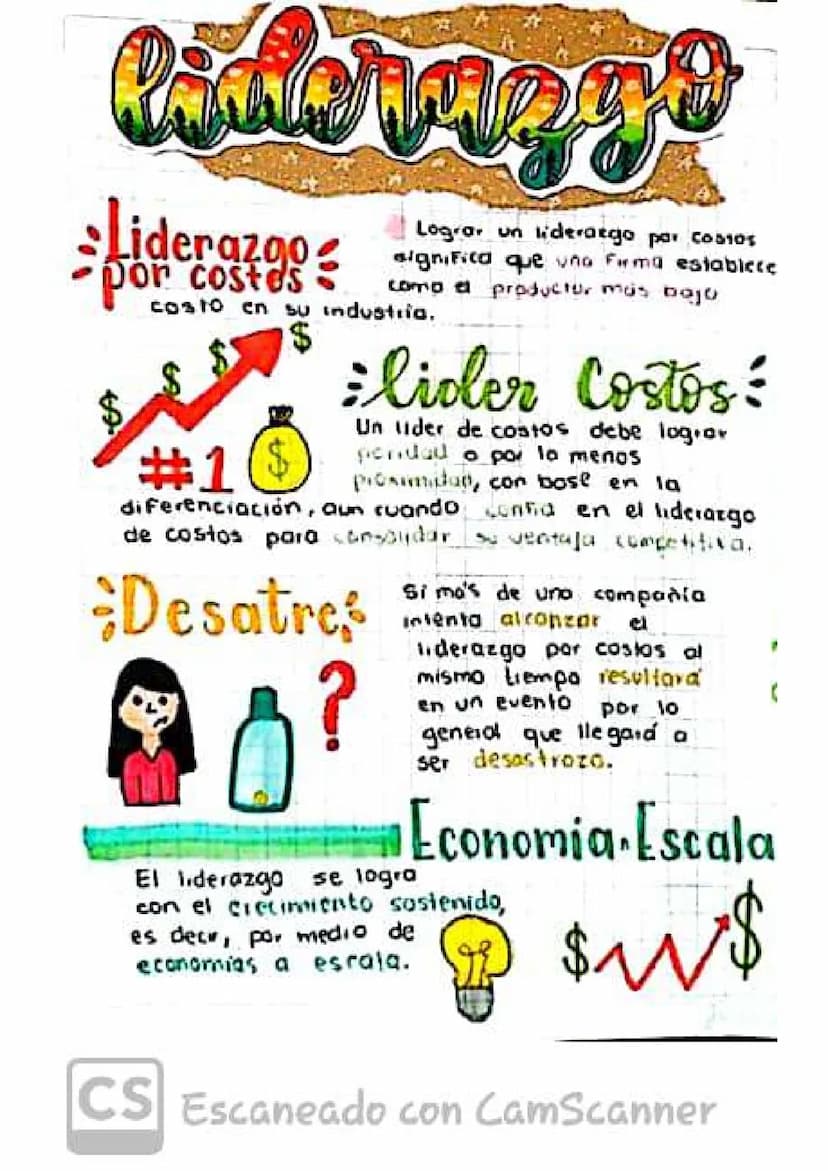 liderazgo
Liderazgo
por costos
Lograr un liderazgo por costos
significa que una firma establece
como el productor más bajo
costo en su industria.
$ $ $ $
#1 $
lider Costos
Un lider de costos debe lograr
paridad o por lo menos
proximidad, con base en la
diferenciación, aun cuando confia en el liderazgo
de costos para consolidar su ventaja competitiva.
Desatre
Si más de una compañia
intenta alcanzar el
liderazgo por costos al
mismo tiempo resultará
en un evento por lo
general que llegará a
ser desastrozo.
?
Economia Escala
El liderazgo se logra
con el crecimiento sostenido,
es decir, por medio de
economías a escala.
$ $
CS Escaneado con CamScanner